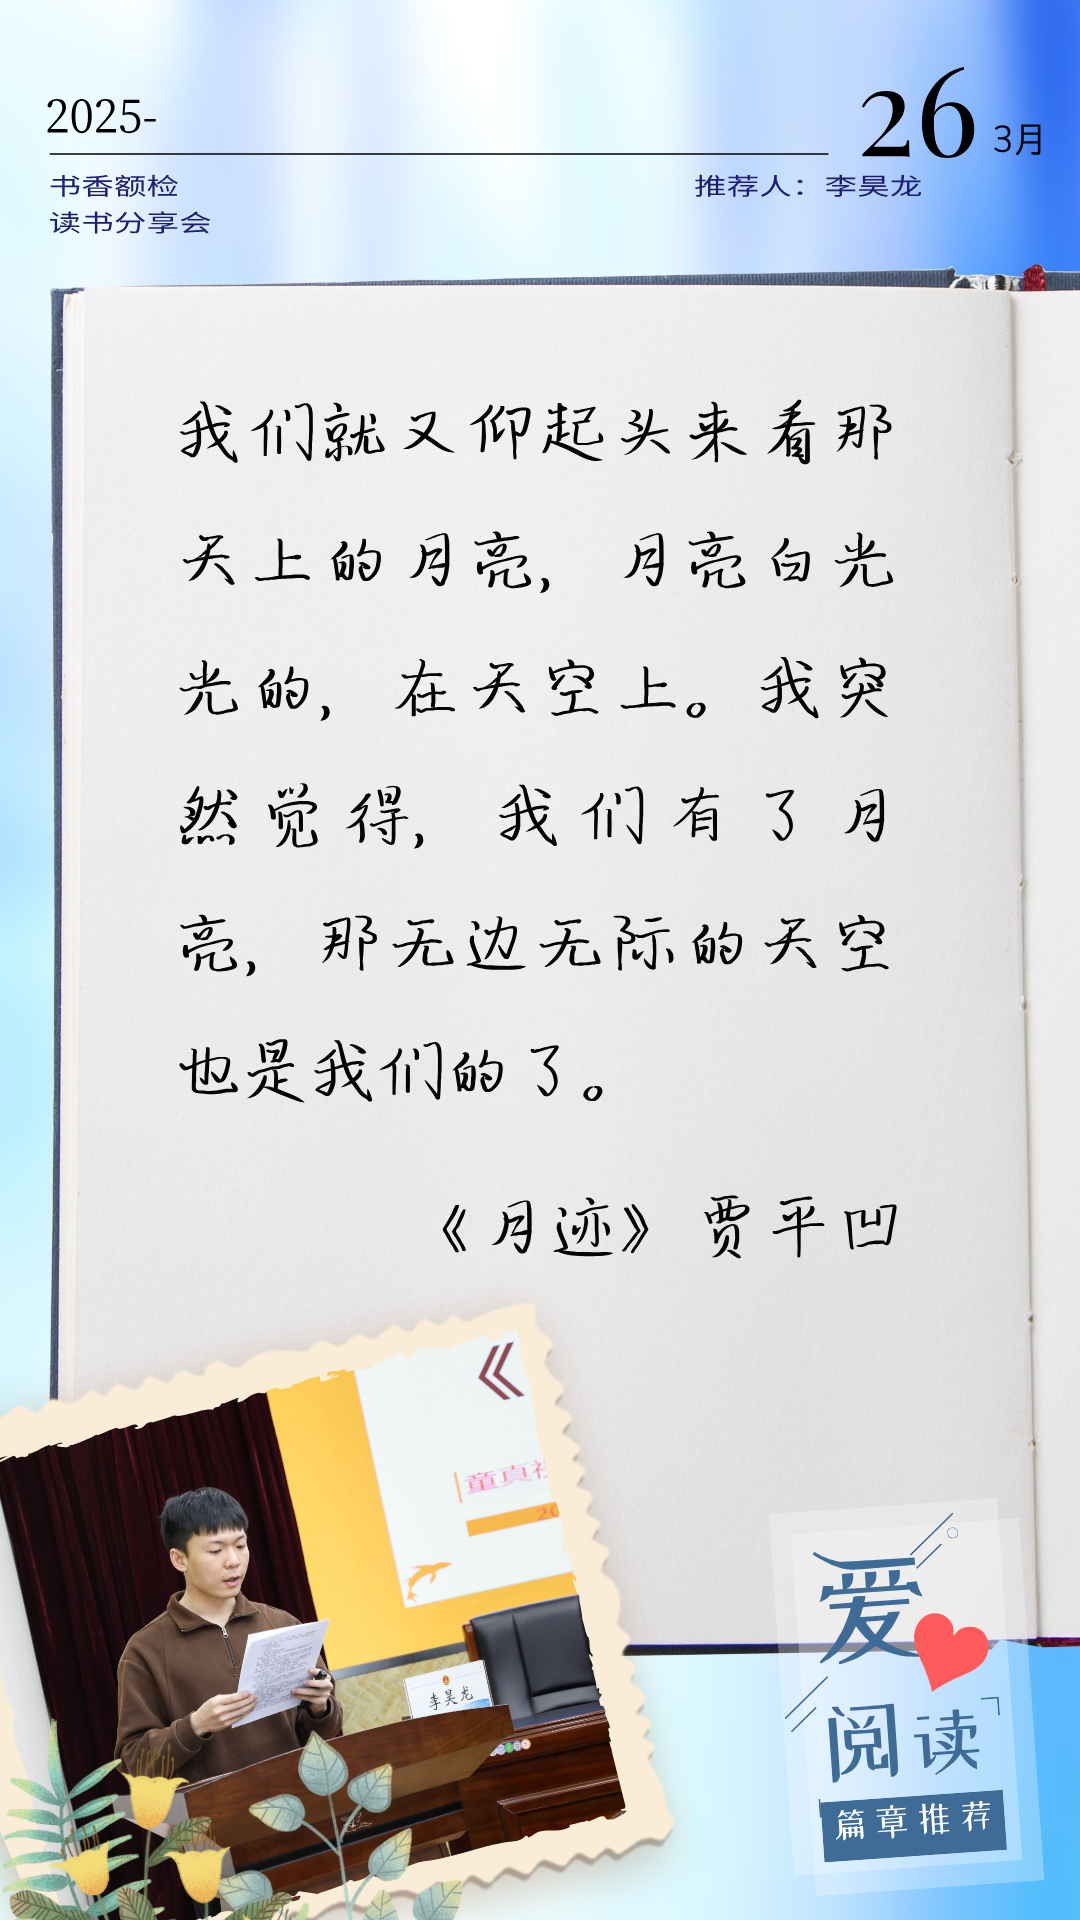 2025-
26 3月
书香额检
读书分享会
推荐人：李昊龙
我们就又仰起头来看那
天上的月亮，月亮白光
光的，在天空上。我突
然觉得，我们有了月
亮，那无边无际的天空
也是我们的了。
《月迹》贾平凹
《
童真
20
李昊龙
爱
阅读
篇章推荐